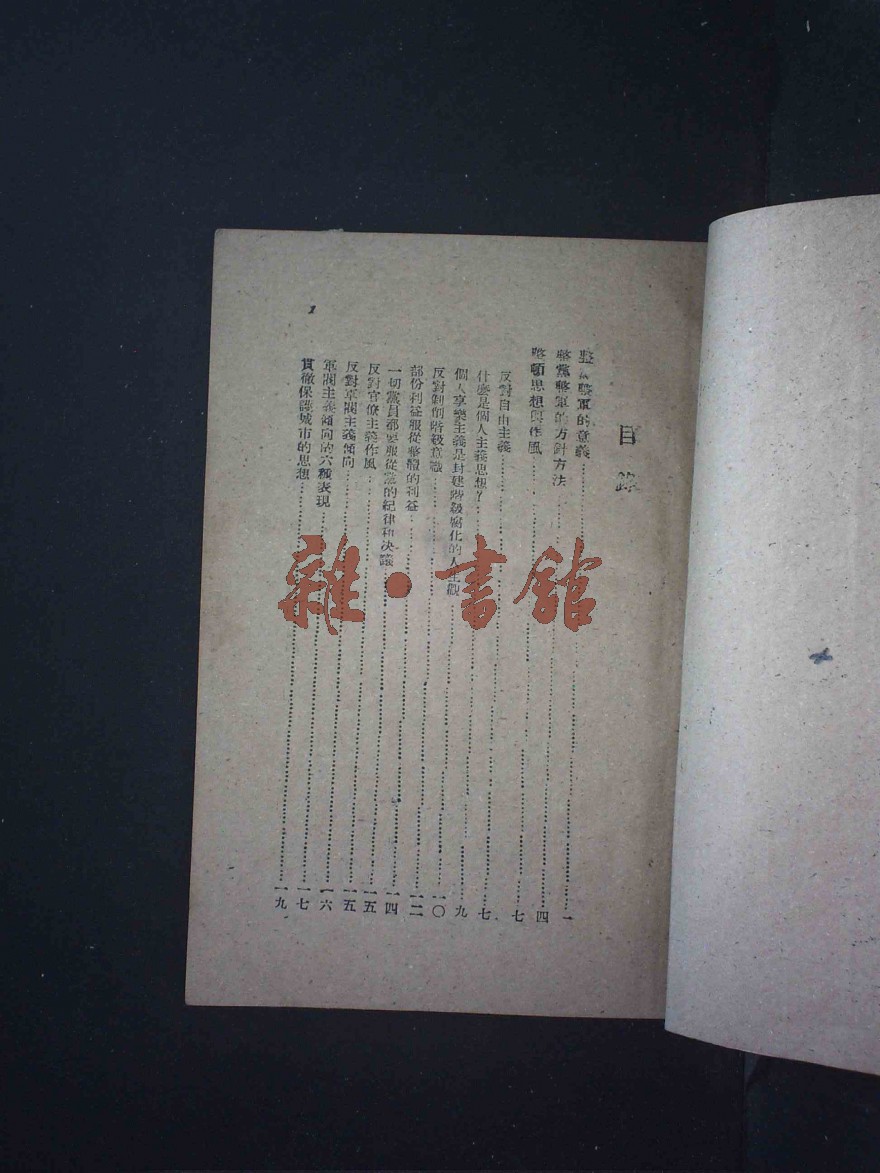 目錄
整黨整軍的意義……一
整黨整軍的方針方法……四
整頓思想與作風……七
反對自由主義……七
什麼是個人主義思想?……九
個人享樂主義是封建階級腐化的人生觀……一〇
反對剝削階級意識……一二
部份利益服從整體的利益……一四
一切黨員都要服從黨的紀律和决議……一五
反對官僚主義作風……一五
反對軍閥主義傾向……一六
軍閥主義傾向的六種表現……一七
貫徹保護城市的思想……一九
1
雜·書館